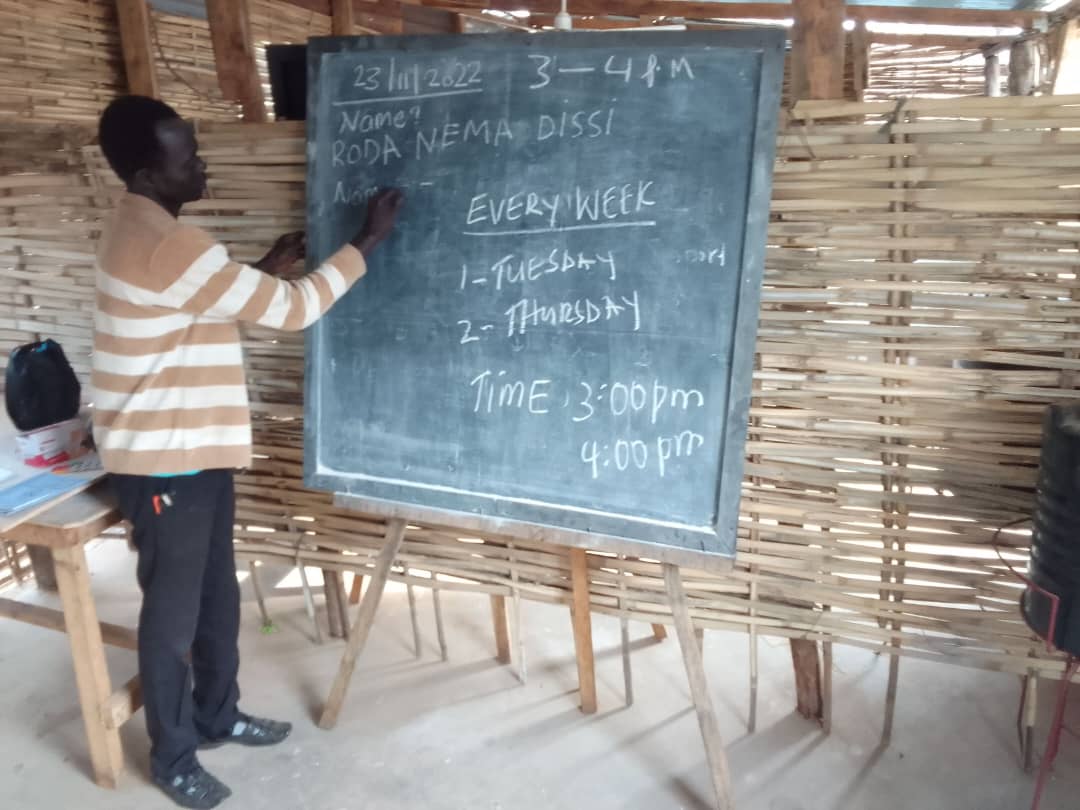 23/11/2022 3-4 P.M
Name?
RODA NEMA DISSI
EVERY WEEK
1-TUESDAY
2- THURSDAY
TIME 3:00pm
4:00pm